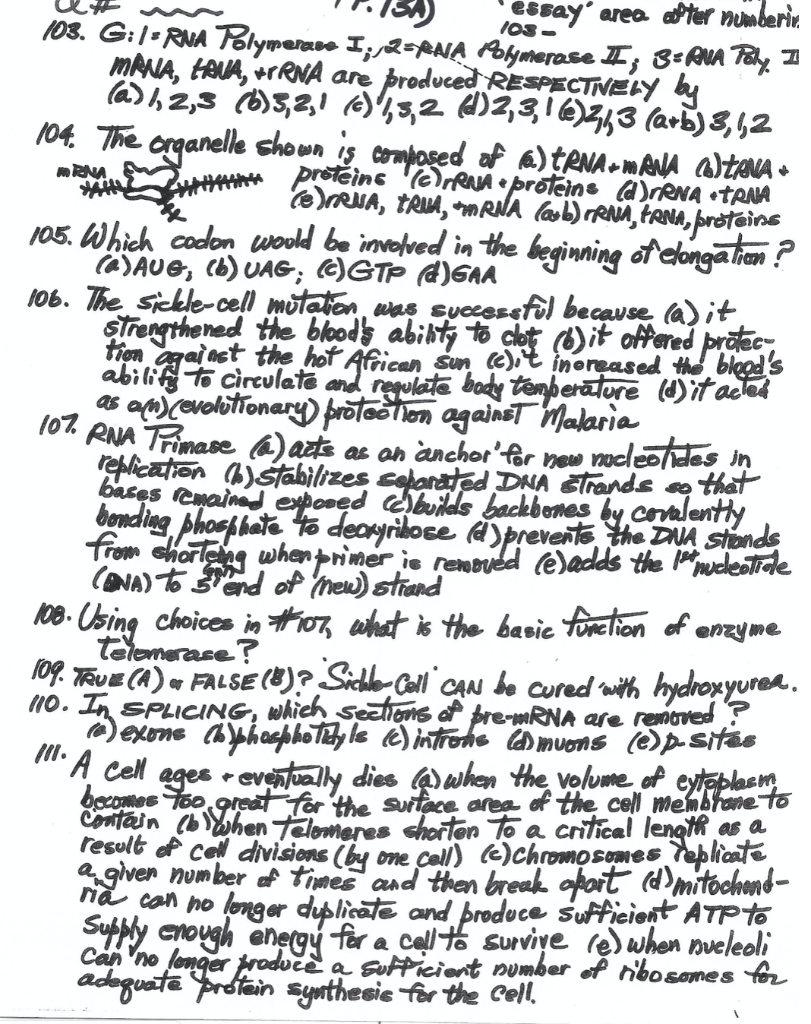 (P. 13A) 'essay' area after numberin
103-
103. G:1=RNA Polymerase I; 2=RNA Polymerase II; 3=RNA Poly. I
mRNA, tRNA, +rRNA are produced RESPECTIVELY by
(a) 1, 2, 3 (b) 3, 2, 1 (c) 1, 3, 2 (d) 2, 3, 1 (e) 2, 1, 3 (a+b) 3, 1, 2
104. The organelle shown is composed of (a) tRNA+mRNA (b) tRNA+
mRNA proteins (c) rRNA+proteins (d) rRNA+tRNA
(e) rRNA, tRNA, +mRNA (a+b) rRNA, tRNA, proteins
105. Which codon would be involved in the beginning of elongation?
(a) AUG; (b) UAG; (c) GTP (d) GAA
106. The sickle-cell mutation was successful because (a) it
strengthened the blood's ability to clot (b) it offered protec-
tion against the hot African sun (c) it increased the blood's
ability to circulate and regulate body temperature (d) it acted
as a(n) (evolutionary) protection against Malaria
107. RNA Primase (a) acts as an 'anchor' for new nucleotides in
replication (b) stabilizes separated DNA strands so that
bases remained exposed (c) builds backbones by covalently
bonding phosphate to deoxyribose (d) prevents the DNA strands
from shorteing when primer is removed (e) adds the 1st nucleotide
(DNA) to 5' end of (new) strand
108. Using choices in #107, what is the basic function of enzyme
telomerase?
109. TRUE (A) or FALSE (B)? 'Sickle-Cell' CAN be cured with hydroxyurea.
110. In SPLICING, which sections of pre-mRNA are removed?
(a) exons (b) phosphotidyls (c) introns (d) muons (e) p-sites
111. A cell ages + eventually dies (a) when the volume of cytoplasm
becomes too great for the surface area of the cell membrane to
contain (b) when telomeres shorten to a critical length as a
result of cell divisions (by one cell) (c) Chromosomes replicate
a given number of times and then break apart (d) mitochond-
ria can no longer duplicate and produce sufficient ATP to
supply enough energy for a cell to survive (e) when nucleoli
can no longer produce a sufficient number of ribosomes for
adequate protein synthesis for the cell.